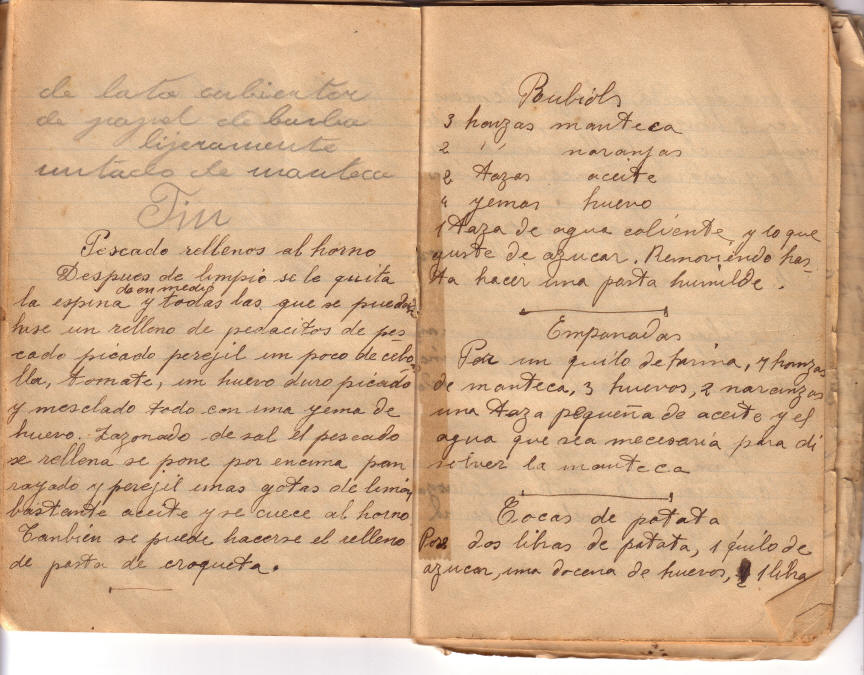 de lata cubiertor
de papel de barba
lijeramente
untado de manteca
Fin
Pescado rellenos al horno
Despues de limpio se le quita
de en medio
la espina y todas las que se puedan
hise un relleno de pedacitos de pes
cado picado perejil un poco de cebo
lla, tomate, un huevo duro picado
y mesclado todo con una yema de
huevo. Zazonado de sal el pescado
se rellena se pone por encima pan
rayado y perejil unas gotas de limón
bastante aceite y se cuece al horno
Tanbién se puede hacerse el relleno
de pasta de croqueta.
Bubiols
3 honzas manteca
2 " naranjas
2 tazas aceite
4 yemas huevo
1 taza de agua caliente, y lo que
guste de azucar. Removiendo has-
ta hacer una pasta humilde.
Empanadas
Por un quilo de farina, 7 honzas
de manteca, 3 huevos, 2 naranzas
una taza pequeña de aceite y el
agua que sea necesaria para di
solver la manteca
Cocas de patata
Por dos libras de patata, 1 quilo de
azucar, una docena de huevos, 1 libra